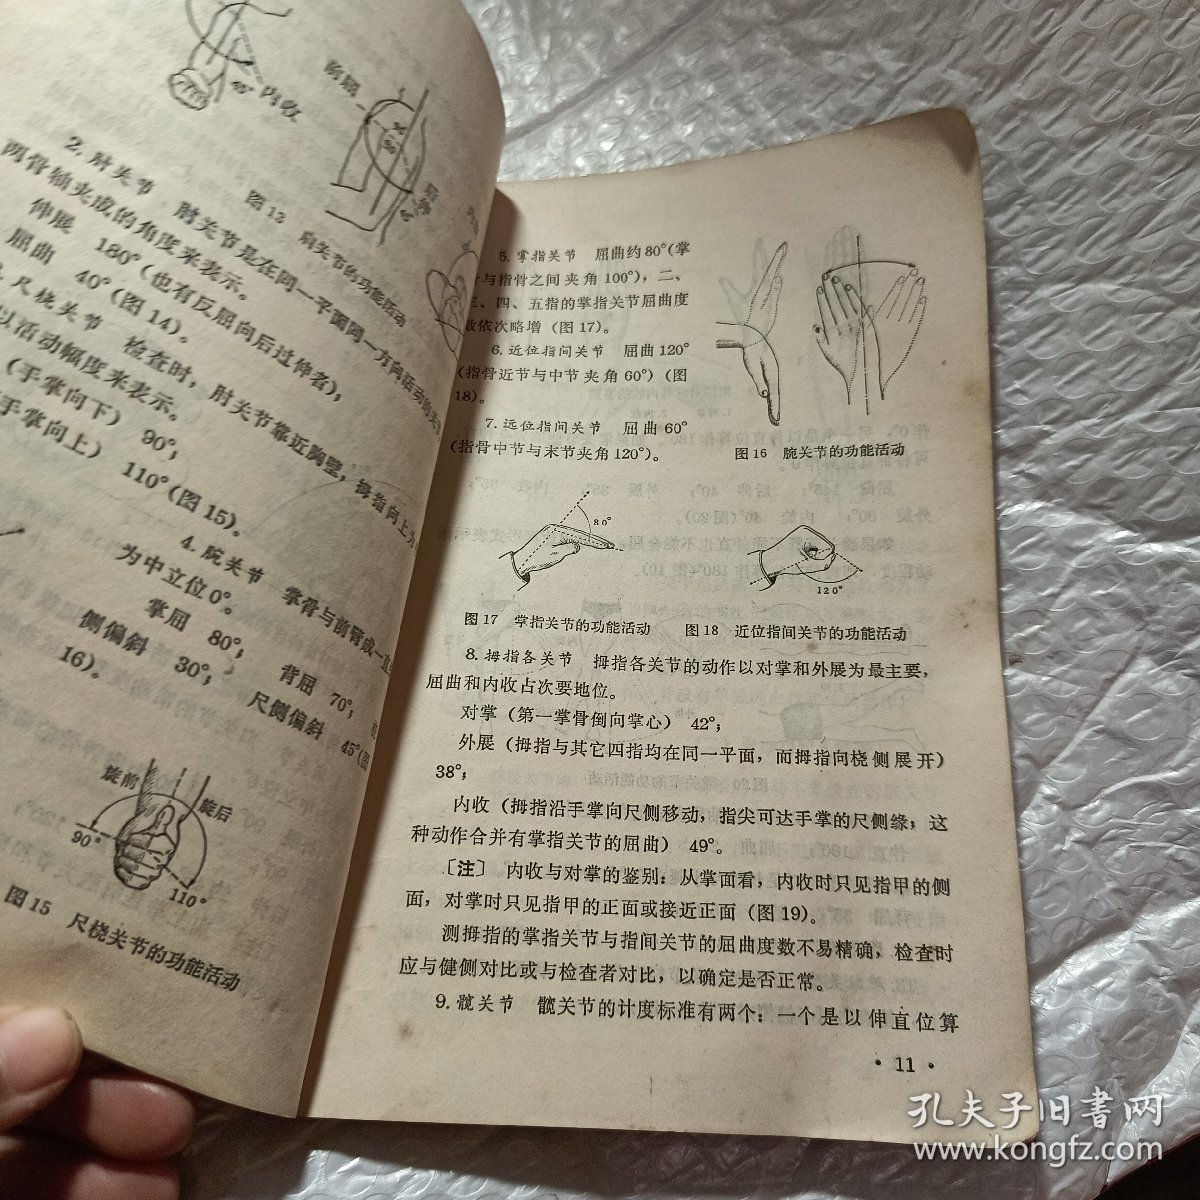 内收
图13 肩关节的功能活动
2. 肘关节 肘关节是在同一平面同一方向活动
两骨轴夹成的角度来表示。
伸展 180°(也有反屈向后过伸者),
屈曲 40°(图14)。
尺桡关节 检查时,肘关节靠近胸壁,拇指向上为
以活动幅度来表示。
(手掌向下) 90°;
手掌向上) 110°(图15)。
4. 腕关节 掌骨与前臂成一直
为中立位0°。
掌屈 80°; 背屈 70°;
侧偏斜 30°; 尺侧偏斜 45°(图
16)。
旋前
旋后
90°
110°
图15 尺桡关节的功能活动
5. 掌指关节 屈曲约80°(掌
与指骨之间夹角100°),二、
三、四、五指的掌指关节屈曲度
数依次略增(图17)。
6. 近位指间关节 屈曲120°
(指骨近节与中节夹角60°)(图
18)。
7. 远位指间关节 屈曲60°
(指骨中节与末节夹角120°)。
图16 腕关节的功能活动
80°
120°
图17 掌指关节的功能活动
图18 近位指间关节的功能活动
8. 拇指各关节 拇指各关节的动作以对掌和外展为最主要,
屈曲和内收占次要地位。
对掌(第一掌骨倒向掌心) 42°;
外展(拇指与其它四指均在同一平面,而拇指向桡侧展开)
38°;
内收(拇指沿手掌向尺侧移动,指尖可达手掌的尺侧缘;这
种动作合并有掌指关节的屈曲) 49°。
〔注〕 内收与对掌的鉴别:从掌面看,内收时只见指甲的侧
面,对掌时只见指甲的正面或接近正面(图19)。
测拇指的掌指关节与指间关节的屈曲度数不易精确,检查时
应与健侧对比或与检查者对比,以确定是否正常。
9. 髋关节 髋关节的计度标准有两个:一个是以伸直位算
·11·
孔夫子旧书网
www.kongfz.com